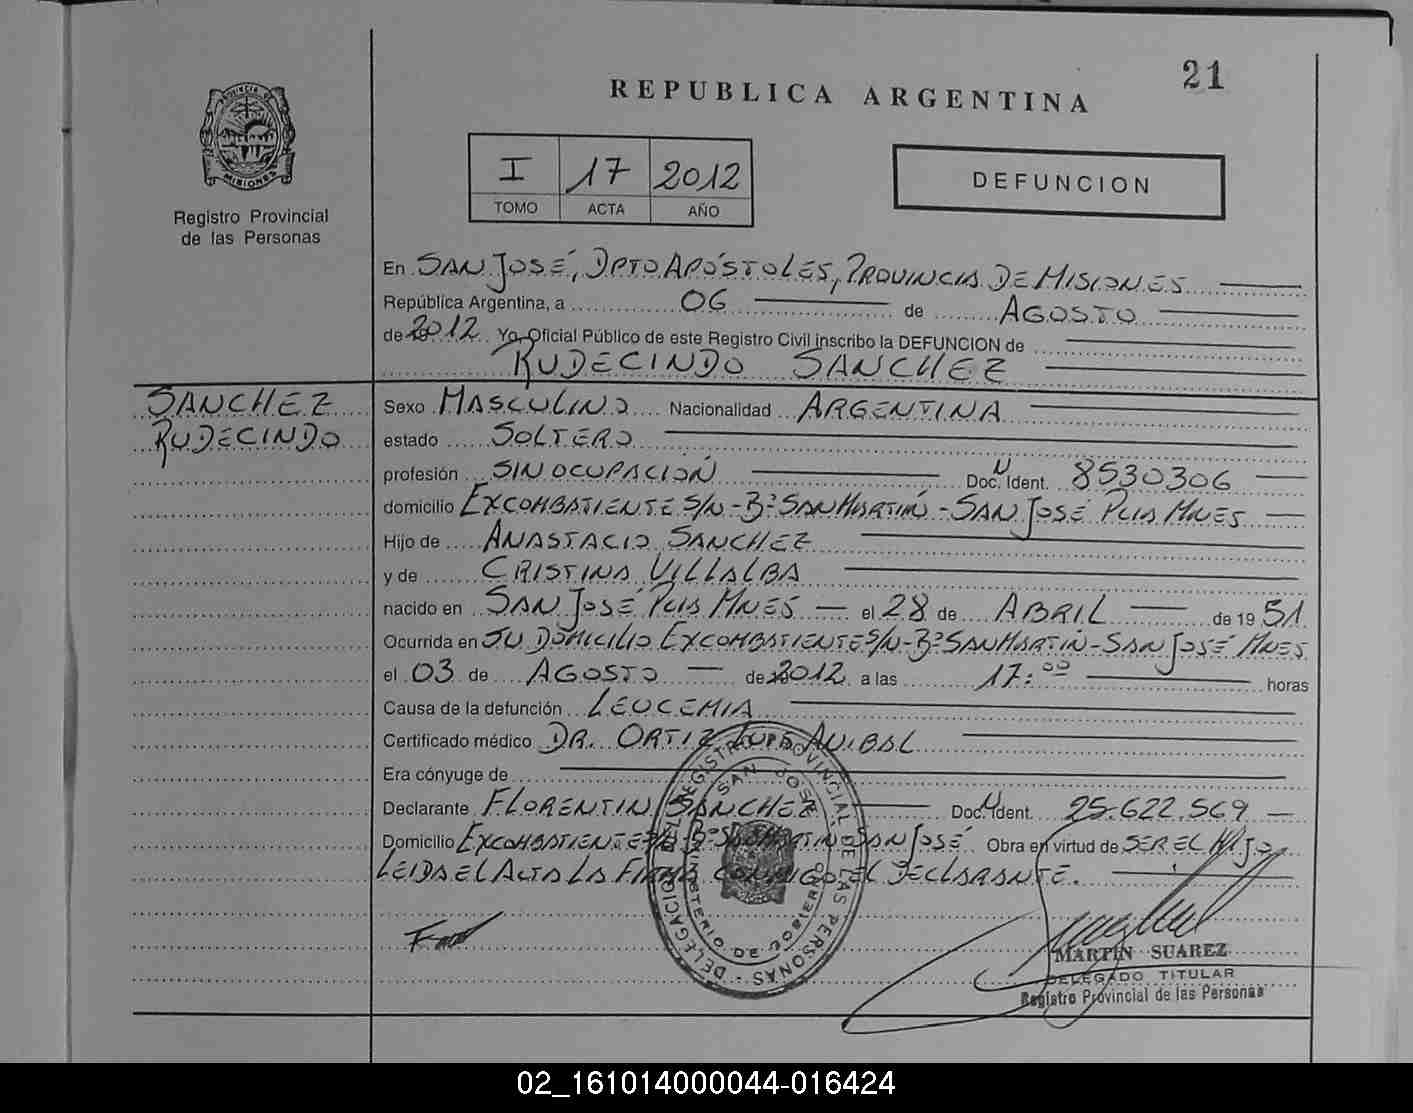 21
REPUBLICA ARGENTINA
PROVINCIA DE
MISIONES
Registro Provincial
de las Personas
I 17 2012
TOMO ACTA AÑO
DEFUNCION
En SAN JOSÉ, DPTO APÓSTOLES, PROVINCIA DE MISIONES
República Argentina, a 06 de AGOSTO
de 2012 Yo, Oficial Público de este Registro Civil inscribo la DEFUNCION de
RUDECINDO SANCHEZ
SANCHEZ
RUDECINDO
Sexo MASCULINO Nacionalidad ARGENTINA
estado SOLTERO
profesión SIN OCUPACIÓN Doc. N Ident. 8530306
domicilio EXCOMBATIENTE S/N - Bº SAN MARTIN - SAN JOSÉ PCIA MNES
Hijo de ANASTACIO SANCHEZ
y de CRISTINA VILLALBA
nacido en SAN JOSÉ PCIA MNES el 28 de ABRIL de 1951
Ocurrida en SU DOMICILIO EXCOMBATIENTE S/N - Bº SAN MARTIN - SAN JOSÉ MNES
el 03 de AGOSTO de 2012 a las 17:00 horas
Causa de la defunción LEUCEMIA
Certificado médico DR. ORTIZ LUIS ANIBAL
Era cónyuge de
Declarante FLORENTIN SANCHEZ Doc. N Ident. 25.622.569
Domicilio EXCOMBATIENTE S/N Bº SAN MARTIN SAN JOSÉ Obra en virtud de SER EL HIJO
LEIDA EL ACTA LA FIRMA CONMIGO EL DECLARANTE.
DELEGACION DEL REGISTRO PROVINCIAL DE LAS PERSONAS
SAN JOSE
MINISTERIO DE GOBIERNO
MARTIN SUAREZ
DELEGADO TITULAR
Registro Provincial de las Personas
02_161014000044-016424